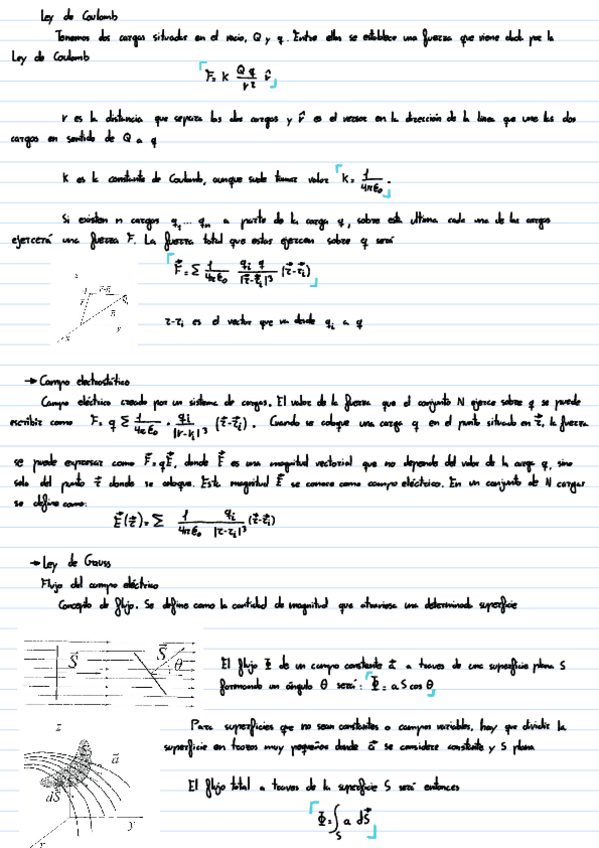 Ley de Coulomb
Tenemos dos cargas situadas en el vacio, Q y q. Entre ellas se establece una fuerza que viene dada por la
Ley de Coulomb
F = K Q q / r² r̂
r es la distancia que separa las dos cargas y r̂ es el versor en la dirección de la linea que une las dos
cargas en sentido de Q a q
K es la constante de Coulomb, aunque suele tomar valor K = 1 / 4πε₀ .
Si existen n cargas q₁ ... qₙ a parte de la carga q, sobre esta ultima cada una de las cargas
ejercerá una fuerza F. La fuerza total que estas ejercen sobre q será
F⃗ = Σ 1 / 4πε₀ qᵢ q / |r⃗-r⃗ᵢ|³ (r⃗-r⃗ᵢ)
z
y
x
r-rᵢ es el vector que va desde qᵢ a q
→ Campo electrostático
Campo eléctrico creado por un sistema de cargas. El valor de la fuerza que el conjunto N ejerce sobre q se puede
escribir como F = q Σ 1 / 4πε₀ · qᵢ / |r-rᵢ|³ (r⃗-r⃗ᵢ). Cuando se coloque una carga q en el punto situado en r⃗, la fuerza
se puede expresar como F⃗ = qE⃗, donde E⃗ es una magnitud vectorial que no depende del valor de la carga q, sino
solo del punto r⃗ donde se coloque. Esta magnitud E⃗ se conoce como campo eléctrico. En un conjunto de N cargas
se define como:
E⃗(r⃗) = Σ 1 / 4πε₀ qᵢ / |r-rᵢ|³ (r⃗-r⃗ᵢ)
→ Ley de Gauss
Flujo del campo eléctrico
Concepto de flujo. Se define como la cantidad de magnitud que atraviesa una determinada superficie
S⃗
S⃗
θ
El flujo Φ de un campo constante a⃗ a traves de una superficie plana S
formando un ángulo θ será: Φ = a S cos θ
z
a⃗
dS⃗
y
x
Para superficies que no sean constantes o campos variables, hay que dividir la
superficie en trozos muy pequeños donde a⃗ se considere constante y S plana
El flujo total a traves de la superficie S será entonces
Φ = ∫S a dS⃗